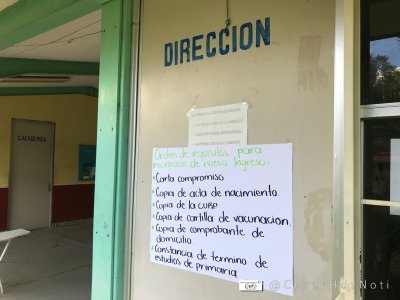 DIRECCION
C.ACADEMICA
C.ACADEMICA
Orden de requisitos para
inscripción de nuevo Ingreso:
• Carta compromiso
• Copia de acta de nacimiento.
• Copia de la CURP
• Copia de cartilla de vacunación.
• Copia de comprobante de
domicilio.
• Constancia de termino de
estudios de primaria